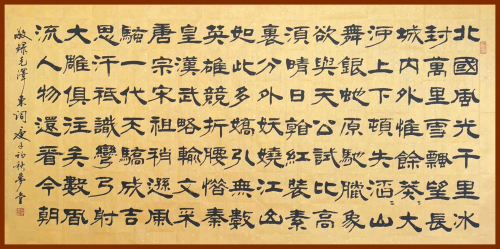 北國風光千里冰
封萬里雪飄望長
城内外惟餘莽大
河上下頓失滔山
舞銀蛇原馳臘象
欲與天公試比高
須晴日看紅裝素
裹分外妖嬈江山
如此多嬌引無數
英雄競折腰惜秦
皇漢武略輸文采
唐宗宋祖稍遜風
騷一代天驕成吉
思汗祗識彎弓射
大雕俱往矣數風
流人物還看今朝
敬録毛澤東詞庚子初秋夢